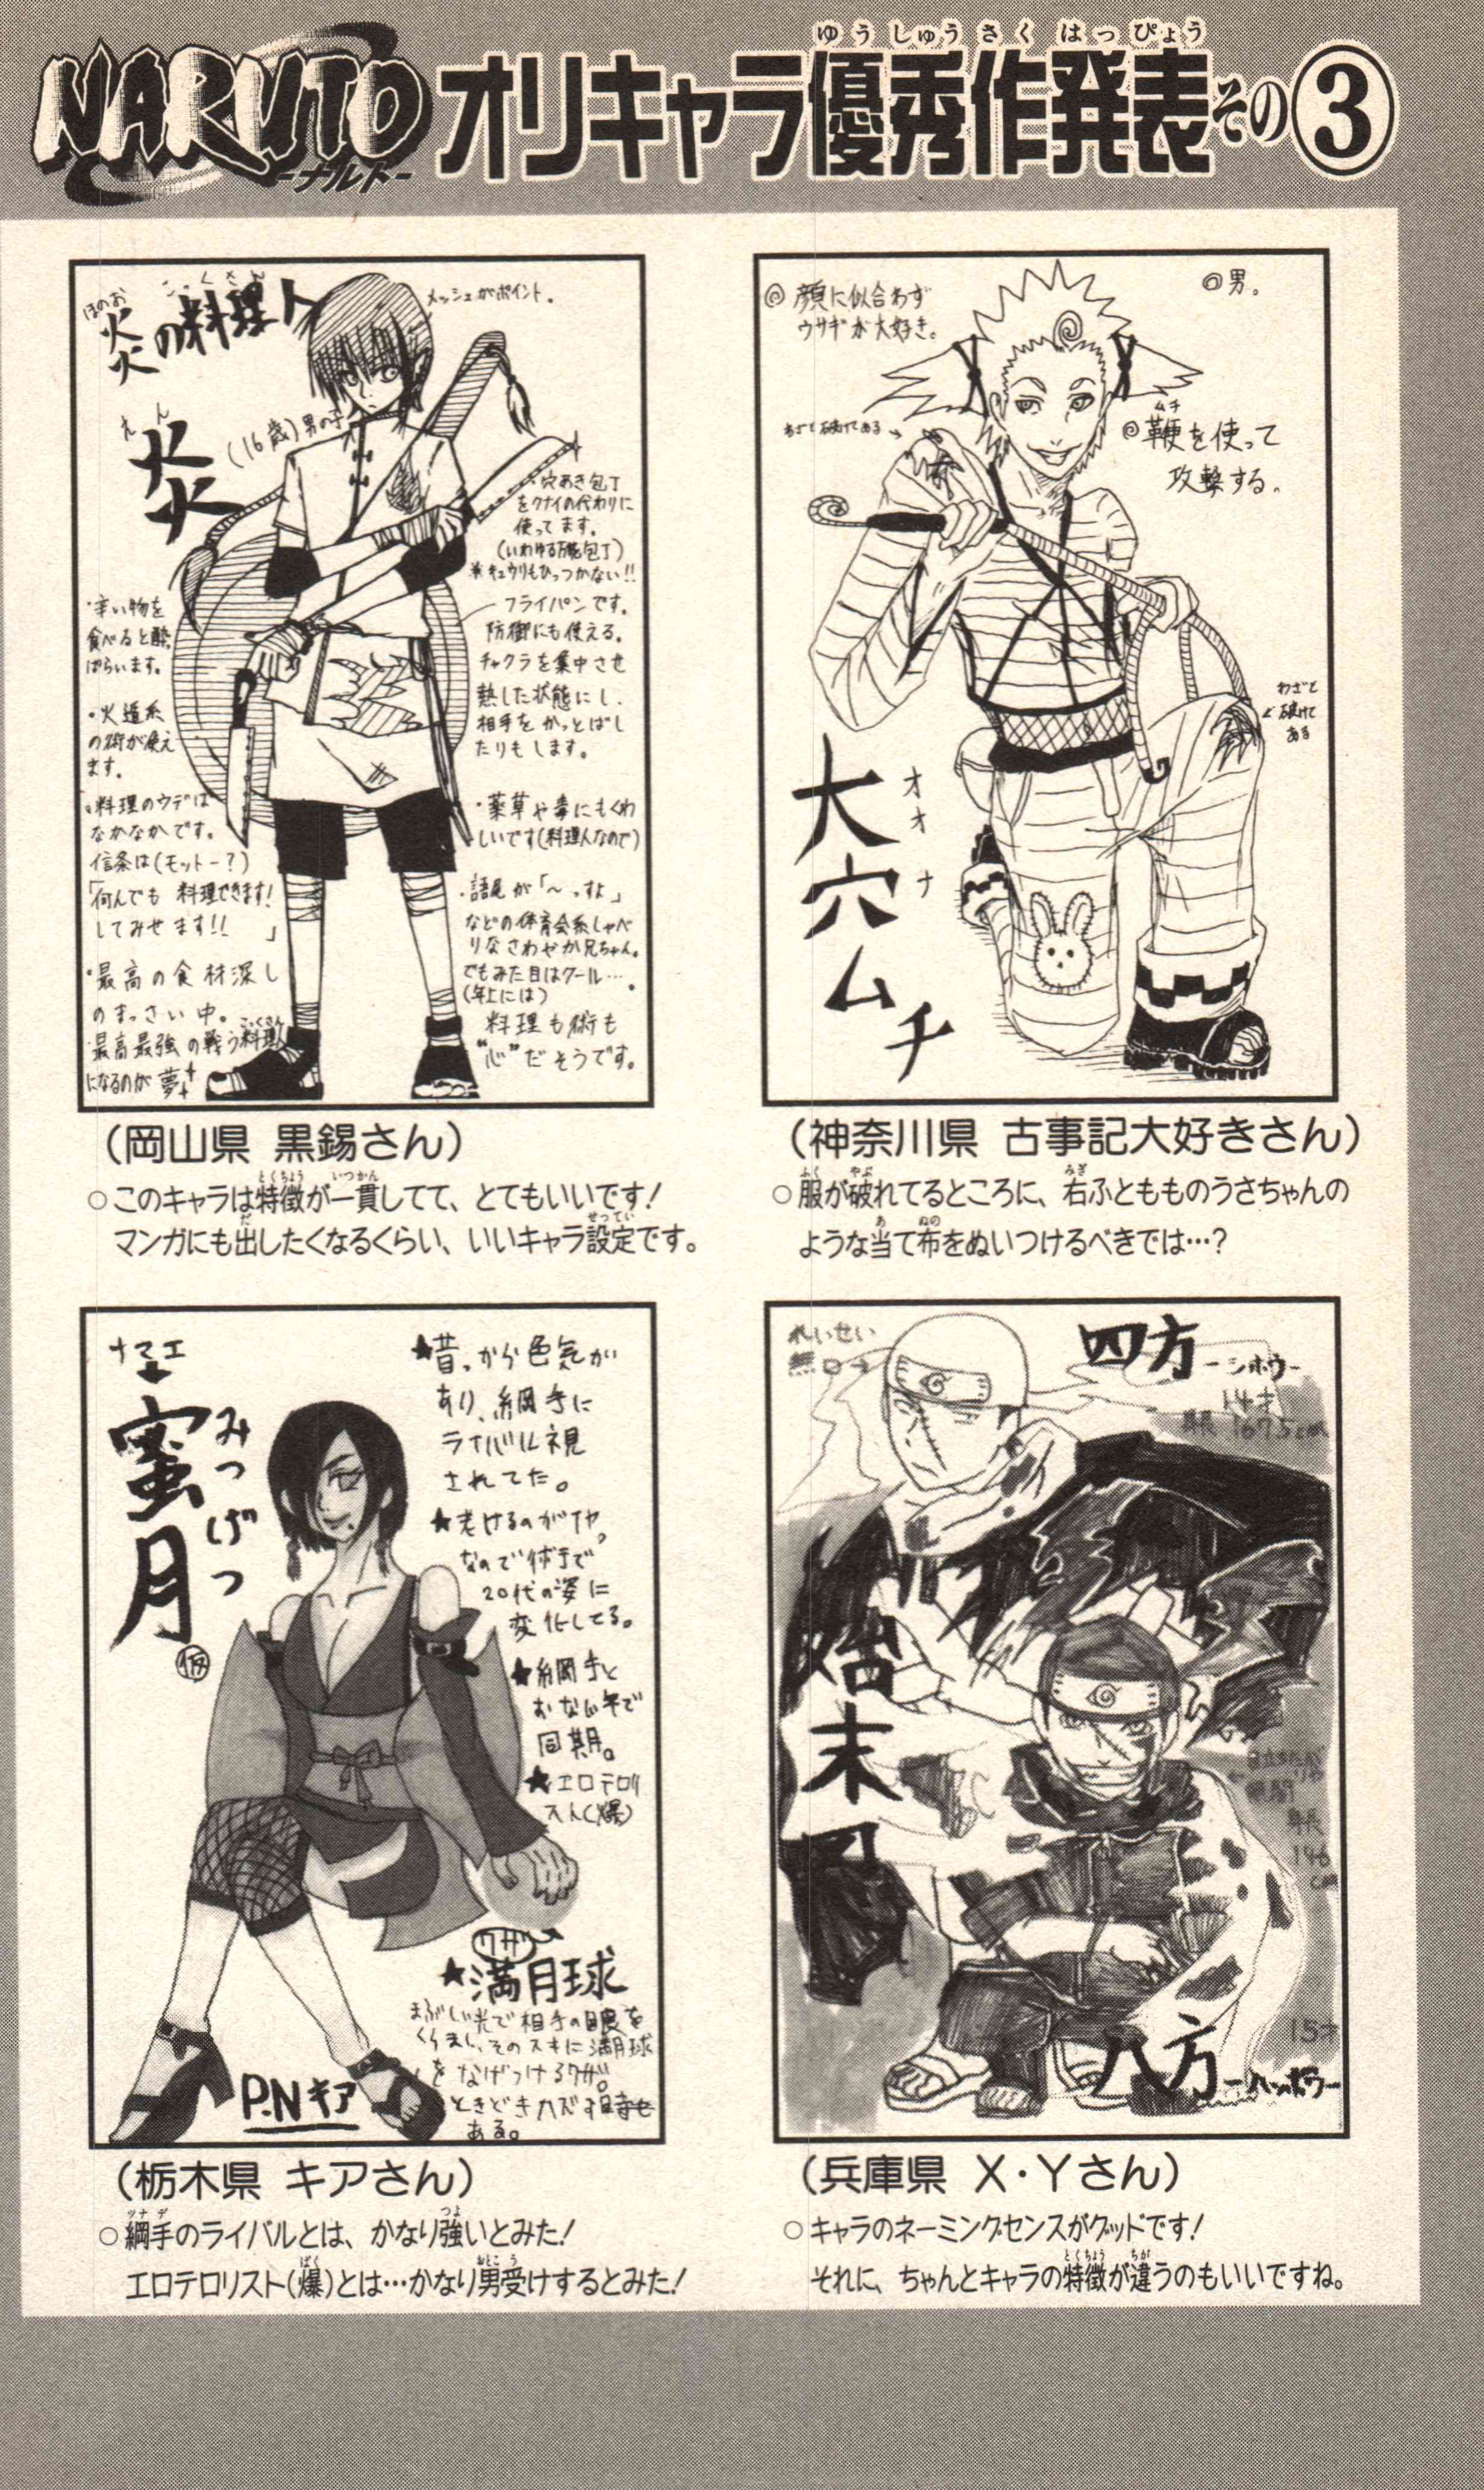 NARUTO
ーナルトー
オリキャラ優秀作発表その③
ゆうしゅうさくはっぴょう
炎の料理人
ほのお
こっくさん
メッシュがポイント。
えん
炎
(16歳)男の子
穴あき包丁
をクナイの代わりに
使ってます。
(いわゆる万能包丁)
※キュウリもひっつかない!!
フライパンです。
防御にも使える。
チャクラを集中させ
熱した状態にし、
相手をかっとばし
たりもします。
・辛い物を
食べると酔っ
ぱらいます。
・火遁系
の術が使え
ます。
・料理のウデは
なかなかです。
信条は(モットー?)
「何んでも料理できます!
してみせます!!」
・最高の食材深し
のまっさい中。
・最高最強の戦う料理人
こっくさん
になるのが夢
・薬草や毒にもくわ
しいです(料理人なので)
・語尾が「〜っすよ」
などの体育会系しゃべ
りなさわやか兄ちゃん。
でもみた目はクール…。
(年上には)
料理も術も
"心"だそうです。
(岡山県 黒錫さん)
○このキャラは特徴が一貫してて、とてもいいです!
とくちょう いっかん
マンガにも出したくなるくらい、いいキャラ設定です。
だ せってい
◎顔に似合わず
ウサギが大好き。
◎男。
わざと破けてある
◎鞭を使って
ムチ
攻撃する。
わざと
破けて
ある
大穴ムチ
オオナ
(神奈川県 古事記大好きさん)
○服が破れてるところに、右ふともものうさちゃんの
ふく やぶ みぎ
ような当て布をぬいつけるべきでは…?
あ ぬの
ナマエ
蜜月
みつげつ
(仮)
★昔っから色気が
あり、綱手に
ライバル視
されてた。
★老けるのがイヤ。
なので体手で
20代の姿に
変化してる。
★綱手と
おない年で
同期。
★エロテロリ
スト(爆)
ワザ
★満月球
まぶしい光で相手の目を
くらまし、そのスキに満月球
をなげつけるワザ。
ときどきハズす時も
ある。
P.Nキア
(栃木県 キアさん)
○綱手のライバルとは、かなり強いとみた!
ツナデ つよ
エロテロリスト(爆)とは…かなり男受けするとみた!
ばく おとこう
れいせい
無口
四方
ーシホウー
14才
身長 167.5cm
始末
身長
146
cm
15才
八方
ーハッポウー
(兵庫県 X・Yさん)
○キャラのネーミングセンスがグッドです!
それに、ちゃんとキャラの特徴が違うのもいいですね。
とくちょう ちが